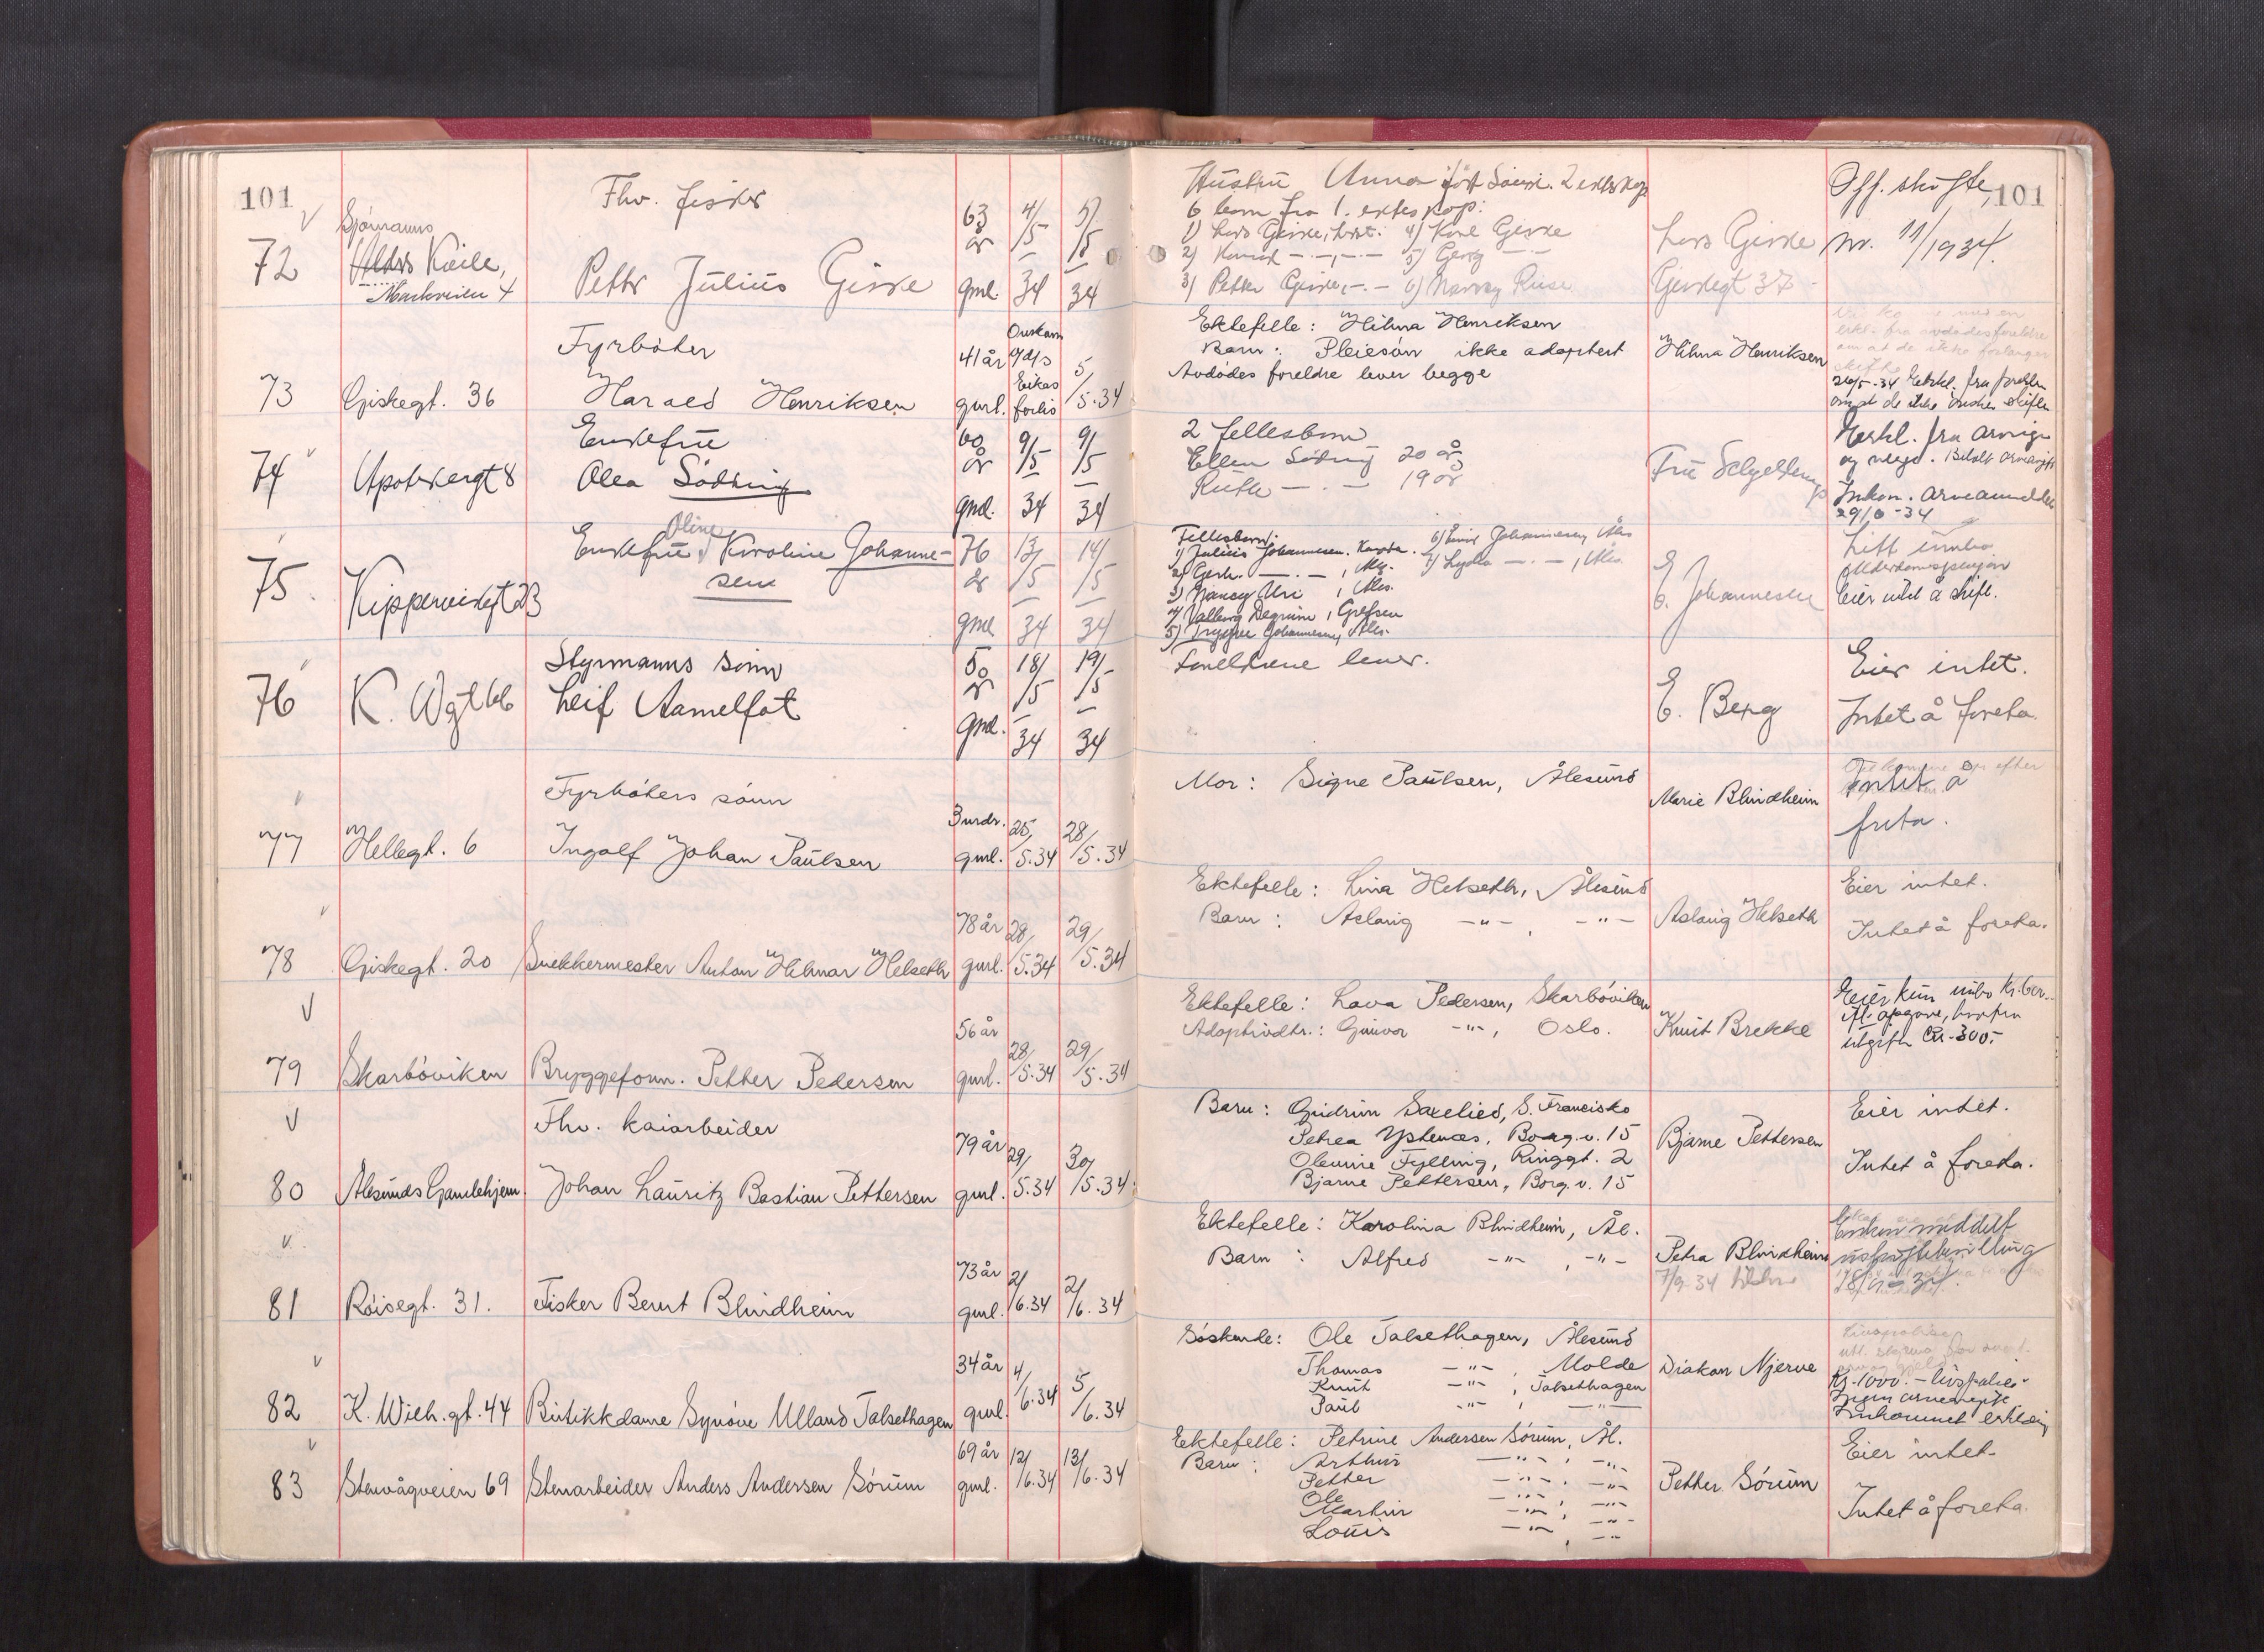 101
72
Sjømanns
Alders Kvile,
Markveien 4
Fhv. fisker
Petter Julius Giske
63 år gml.
4/5 34
5/5 34
Hustru Anna født 2 ekteskap
6 barn fra 1. ekteskap:
1) Lars Giske, 4) Karl Giske
2) Konrad -"- 5) Georg -"-
3) Petter Giske, -"- 6) Riise
Lars Giske
Giskegt 37
Off. skifte,
nr. 11/1934.
101
73
Giskegt. 36
Fyrbøter
Harald Henriksen
41 år gml.
Omkom
Eikas
forlis
5/5.34
Ektefelle: Hilma Henriksen
Barn: Pleiesøn ikke adoptert
Avdødes foreldre lever begge
Hilma Henriksen
26/5-34 Erkl. fra foreldre
om at de ikke ønsker skifte
74
Apotekergt 8
Enkefru
Olea Sødring
60 år gml.
9/5 34
9/5 34
2 fellesbarn
Ellen Sødring 20 år
Ruth -"- 19 år
Fru
Erkl. fra
Innkom. arveanmeldelse
29/6-34
75
Kippervikgt 23
Enkefru Oline Karoline Johannesen
76 år gml
13/5 34
14/5 34
Fellesbarn:
1) Julius Johannesen. 6) Johannesen, Åles
2) Gerh. -"-, 7) Lydia -"-, Åles.
3) Nancy Uri, Åles.
4) Valborg, Grefsen
5) Trygve Johannesen, Åles.
E. Johannesen
Litt innbo
Alderdomspensjon
Eier intet å skifte.
76
K. Wgt 66
Styrmanns sønn
Leif Aamelfot
50 år gml.
18/5 34
19/5 34
Foreldrene lever.
E. Berg
Eier intet.
Intet å foreta.
77
Hellegt. 6
Fyrbøters sønn
Ingolf Johan Paulsen
3 mdr. gml.
25/5.34
28/5.34
Mor: Signe Paulsen, Ålesund
Marie Blindheim
Intet å
foreta.
78
Giskegt. 20
Snekkermester Anton Hilmar Helseth
78 år gml.
28/5.34
29/5.34
Ektefelle: Lina Helseth, Ålesund
Barn: Aslaug -"-, -"-
Aslaug Helseth
Eier intet.
Intet å foreta.
79
Skarbøviken
Bryggeform. Petter Pedersen
56 år gml.
28/5.34
29/5.34
Ektefelle: Lava Pedersen, Skarbøviken
Adoptivdtr.: Gunvor -"-, Oslo.
Knut Brekke
Eier kun innbo
utgifter 300,-
80
Ålesunds Gamlehjem.
Fhv. kaiarbeider
Johan Lauritz Bastian Pettersen
79 år gml.
29/5.34
30/5.34
Barn: Gudrun Saxelied, S. Francisko
Petrea Ystenæs, Borg.v. 15
Olevine Fylling, Ringgt. 2
Bjarne Pettersen, Borg.v. 15
Bjarne Pettersen
Eier intet.
Intet å foreta.
81
Røisegt. 31.
Fisker Bernt Blindheim
73 år gml.
2/6.34
2/6.34
Ektefelle: Karolina Blindheim, Ål.
Barn: Alfred -"-, -"-
Petra Blindheim
7/9 34
Enken meddelt
uskiftebevilling
18/9-34.
82
K. Wilh.gt. 44
Butikkdame Synøve Ulland Talsethagen
34 år gml.
4/6.34
5/6.34
Søskende: Ole Talsethagen, Ålesund
Thomas -"-, Molde
Knut -"-, Talsethagen
Paul -"-, -"-
Diakon Njerve
Kr. 1000.- livspolise
Ingen arveavgift
Innkommet erklæring
83
Stenvågveien 69
Stenarbeider Anders Andersen Sørum
69 år gml.
12/6.34
13/6.34
Ektefelle: Petrine Andersen Sørum, Ål.
Barn: Arthur -"-, -"-
Petter -"-, -"-
Ole -"-, -"-
Martin -"-, -"-
Louis -"-, -"-
Petter Sørum
Eier intet.
Intet å foreta.